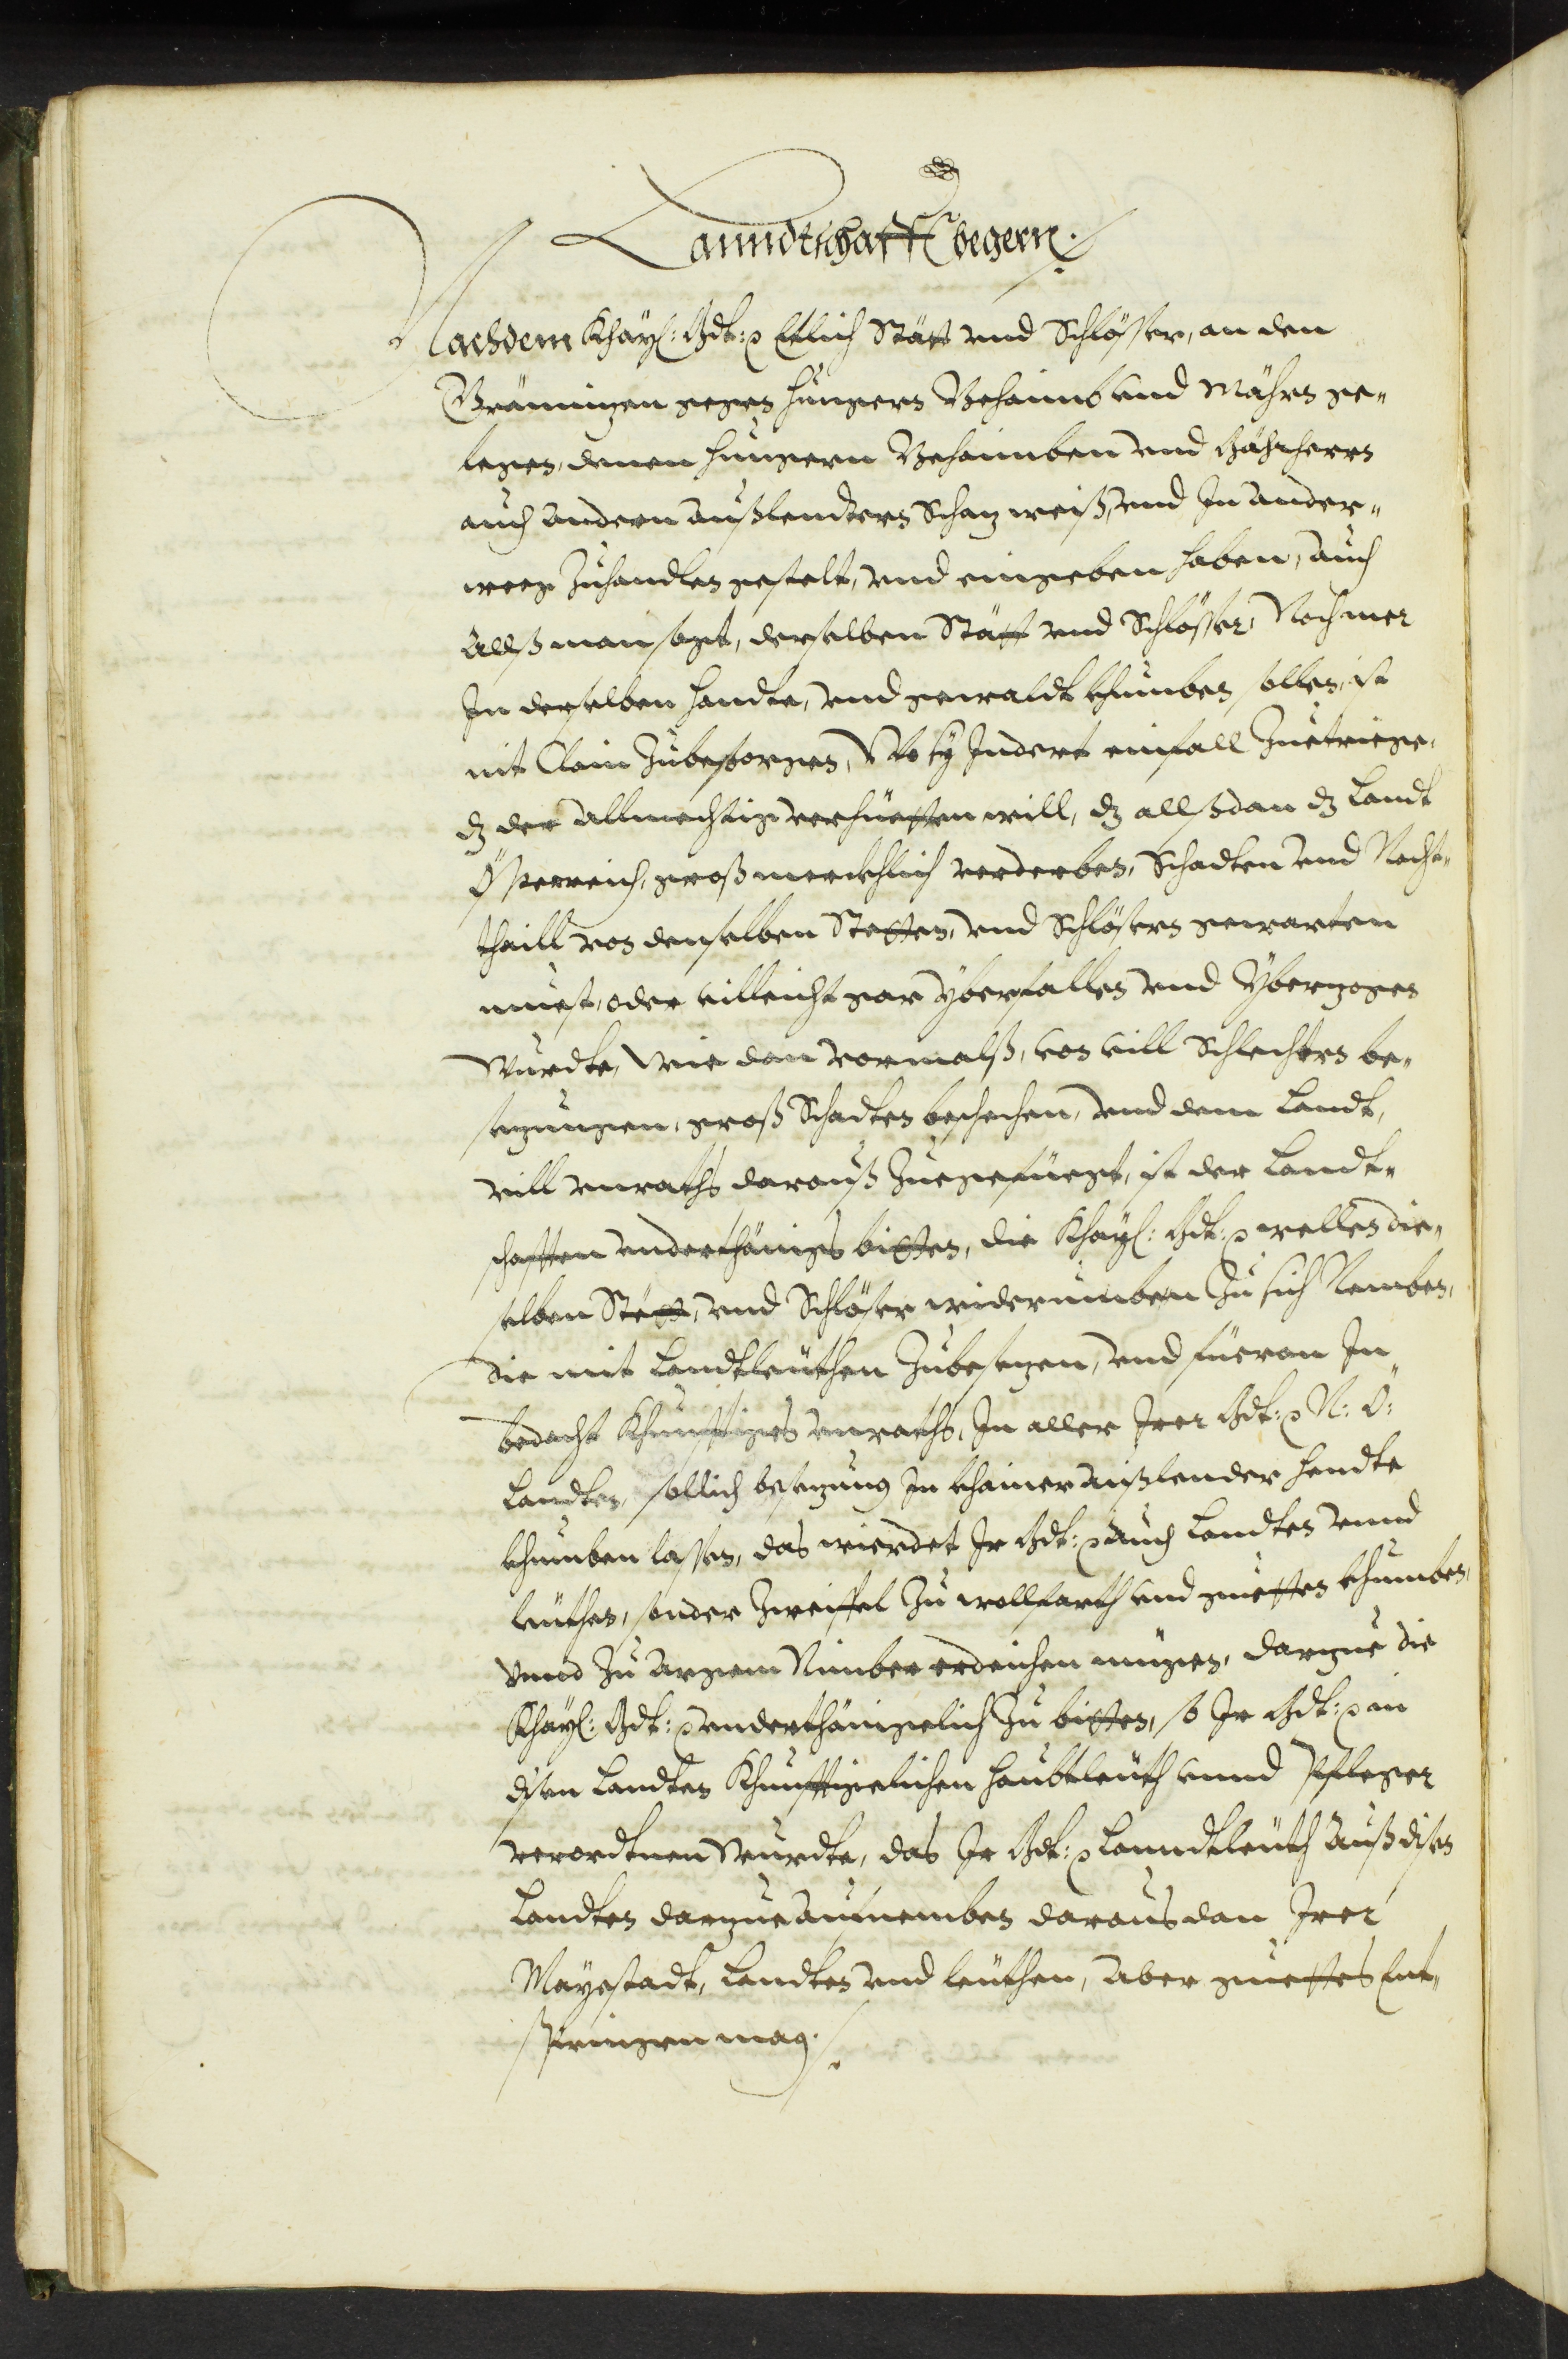 Lanndtschafft begern.
Nachdem Khay: Mt: etlich Stätt vnd Schlösser, an den
Gräningen gegen Hungern Behaimb vnd Mährn ge„
legen, denen Hungern Behaimben vnd Mährhern
auch andern außlendtern Schaz weiß, vnd In ander„
weeg Zuhandten gestelt, vnd eingeben haben, auch
allß man sagt, derselben Stätt vnd Schlösser, Noch mer
In derselben handte, vnd gewaldt khumben sollen, ist
nit Clain Zubesorgen, Wo sy Indert einfall Zuetriege,
dz der Allmechtig verhüetten will, dz allßdan dz Landt
Össterreich, groß merckhlich verderben, Schadten vnd Nach„
thaill von denselben Stetten, vnd Schlössern gewarten
muest, oder villeicht gar yberfallen vnd yberzogen
Wurdte, Wie dan vormalß, von vill Schlechtern be„
sezungen, groß Schadten beschechen, vnd dem Landt,
vill vnraths darauß Zuegefüegt, ist der Landt„
schafften vnderthänigs bitten, die Khay: Mt: wellen die„
selben Stett, vnd Schlösser widerumben Zu sich Nemben,
die mit Landtleüthen Zubesezen, vnd füeran In
bedacht Khunfftiges vnraths, In aller Irer Mt: N: Ö:
Landten, sollich besezung In khainer außlender Hendte
khumben lassen, das wierdet Ir Mt: auch Landten vnnd
leüthen, sonder Zweiffel Zu wollfarth vnd guetten khumben,
vnnd Zu argem Nimber erdeichen mügen, darzue die
Khay: Mt: vnderthänigelich Zu bitten, so Ir Mt: in
disen Landten Khunfftigelichen haubtleüth vnnd Pfleger
verordtnen Wurdte, das Ir Mt: Lanndtleüth auß disen
Landten darzue aufnemben daraus dan Irer
Mayestadt, Landten vnd leüthen, aber guettes Ent„
springen mag.